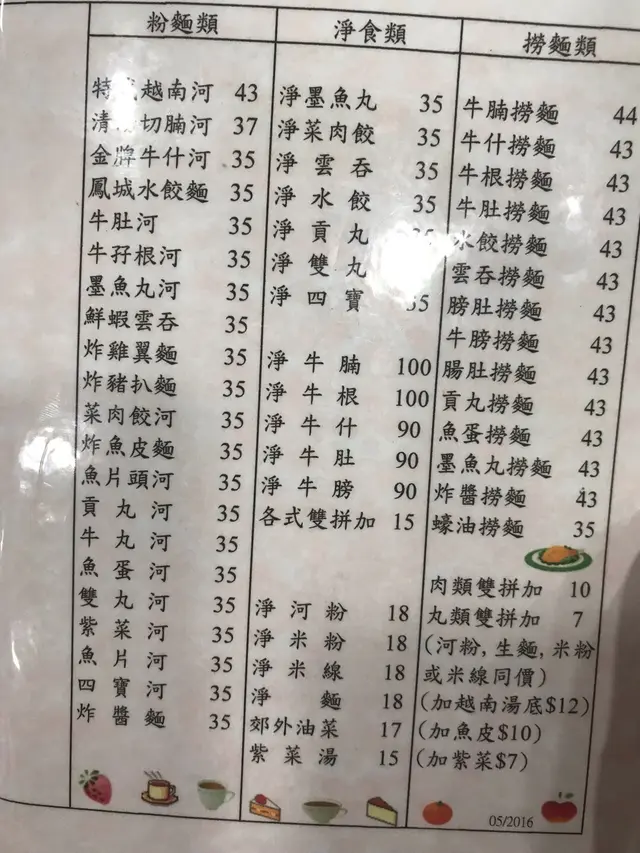 粉麵類
特 越南河 43
清 切腩河 37
金牌牛什河 35
鳳城水餃麵 35
牛肚河 35
牛孖根河 35
墨魚丸河 35
鮮蝦雲吞 35
炸雞翼麵 35
炸豬扒麵 35
菜肉餃河 35
炸魚皮麵 35
魚片頭河 35
貢丸河 35
牛丸河 35
魚蛋河 35
雙丸河 35
紫菜河 35
魚片河 35
四寶河 35
炸醬麵 35
淨食類
淨墨魚丸 35
淨菜肉餃 35
淨雲吞 35
淨水餃 35
淨貢丸
淨雙丸
淨四寶 35
淨牛腩 100
淨牛根 100
淨牛什 90
淨牛肚 90
淨牛膀 90
各式雙拼加 15
淨河粉 18
淨米粉 18
淨米線 18
淨麵 18
郊外油菜 17
紫菜湯 15
撈麵類
牛腩撈麵 44
牛什撈麵 43
牛根撈麵 43
牛肚撈麵 43
水餃撈麵 43
雲吞撈麵 43
膀肚撈麵 43
牛膀撈麵 43
腸肚撈麵 43
貢丸撈麵 43
魚蛋撈麵 43
墨魚丸撈麵 43
炸醬撈麵 43
蠔油撈麵 35
肉類雙拼加 10
丸類雙拼加 7
(河粉,生麵,米粉
或米線同價)
(加越南湯底$12)
(加魚皮$10)
(加紫菜$7)
05/2016